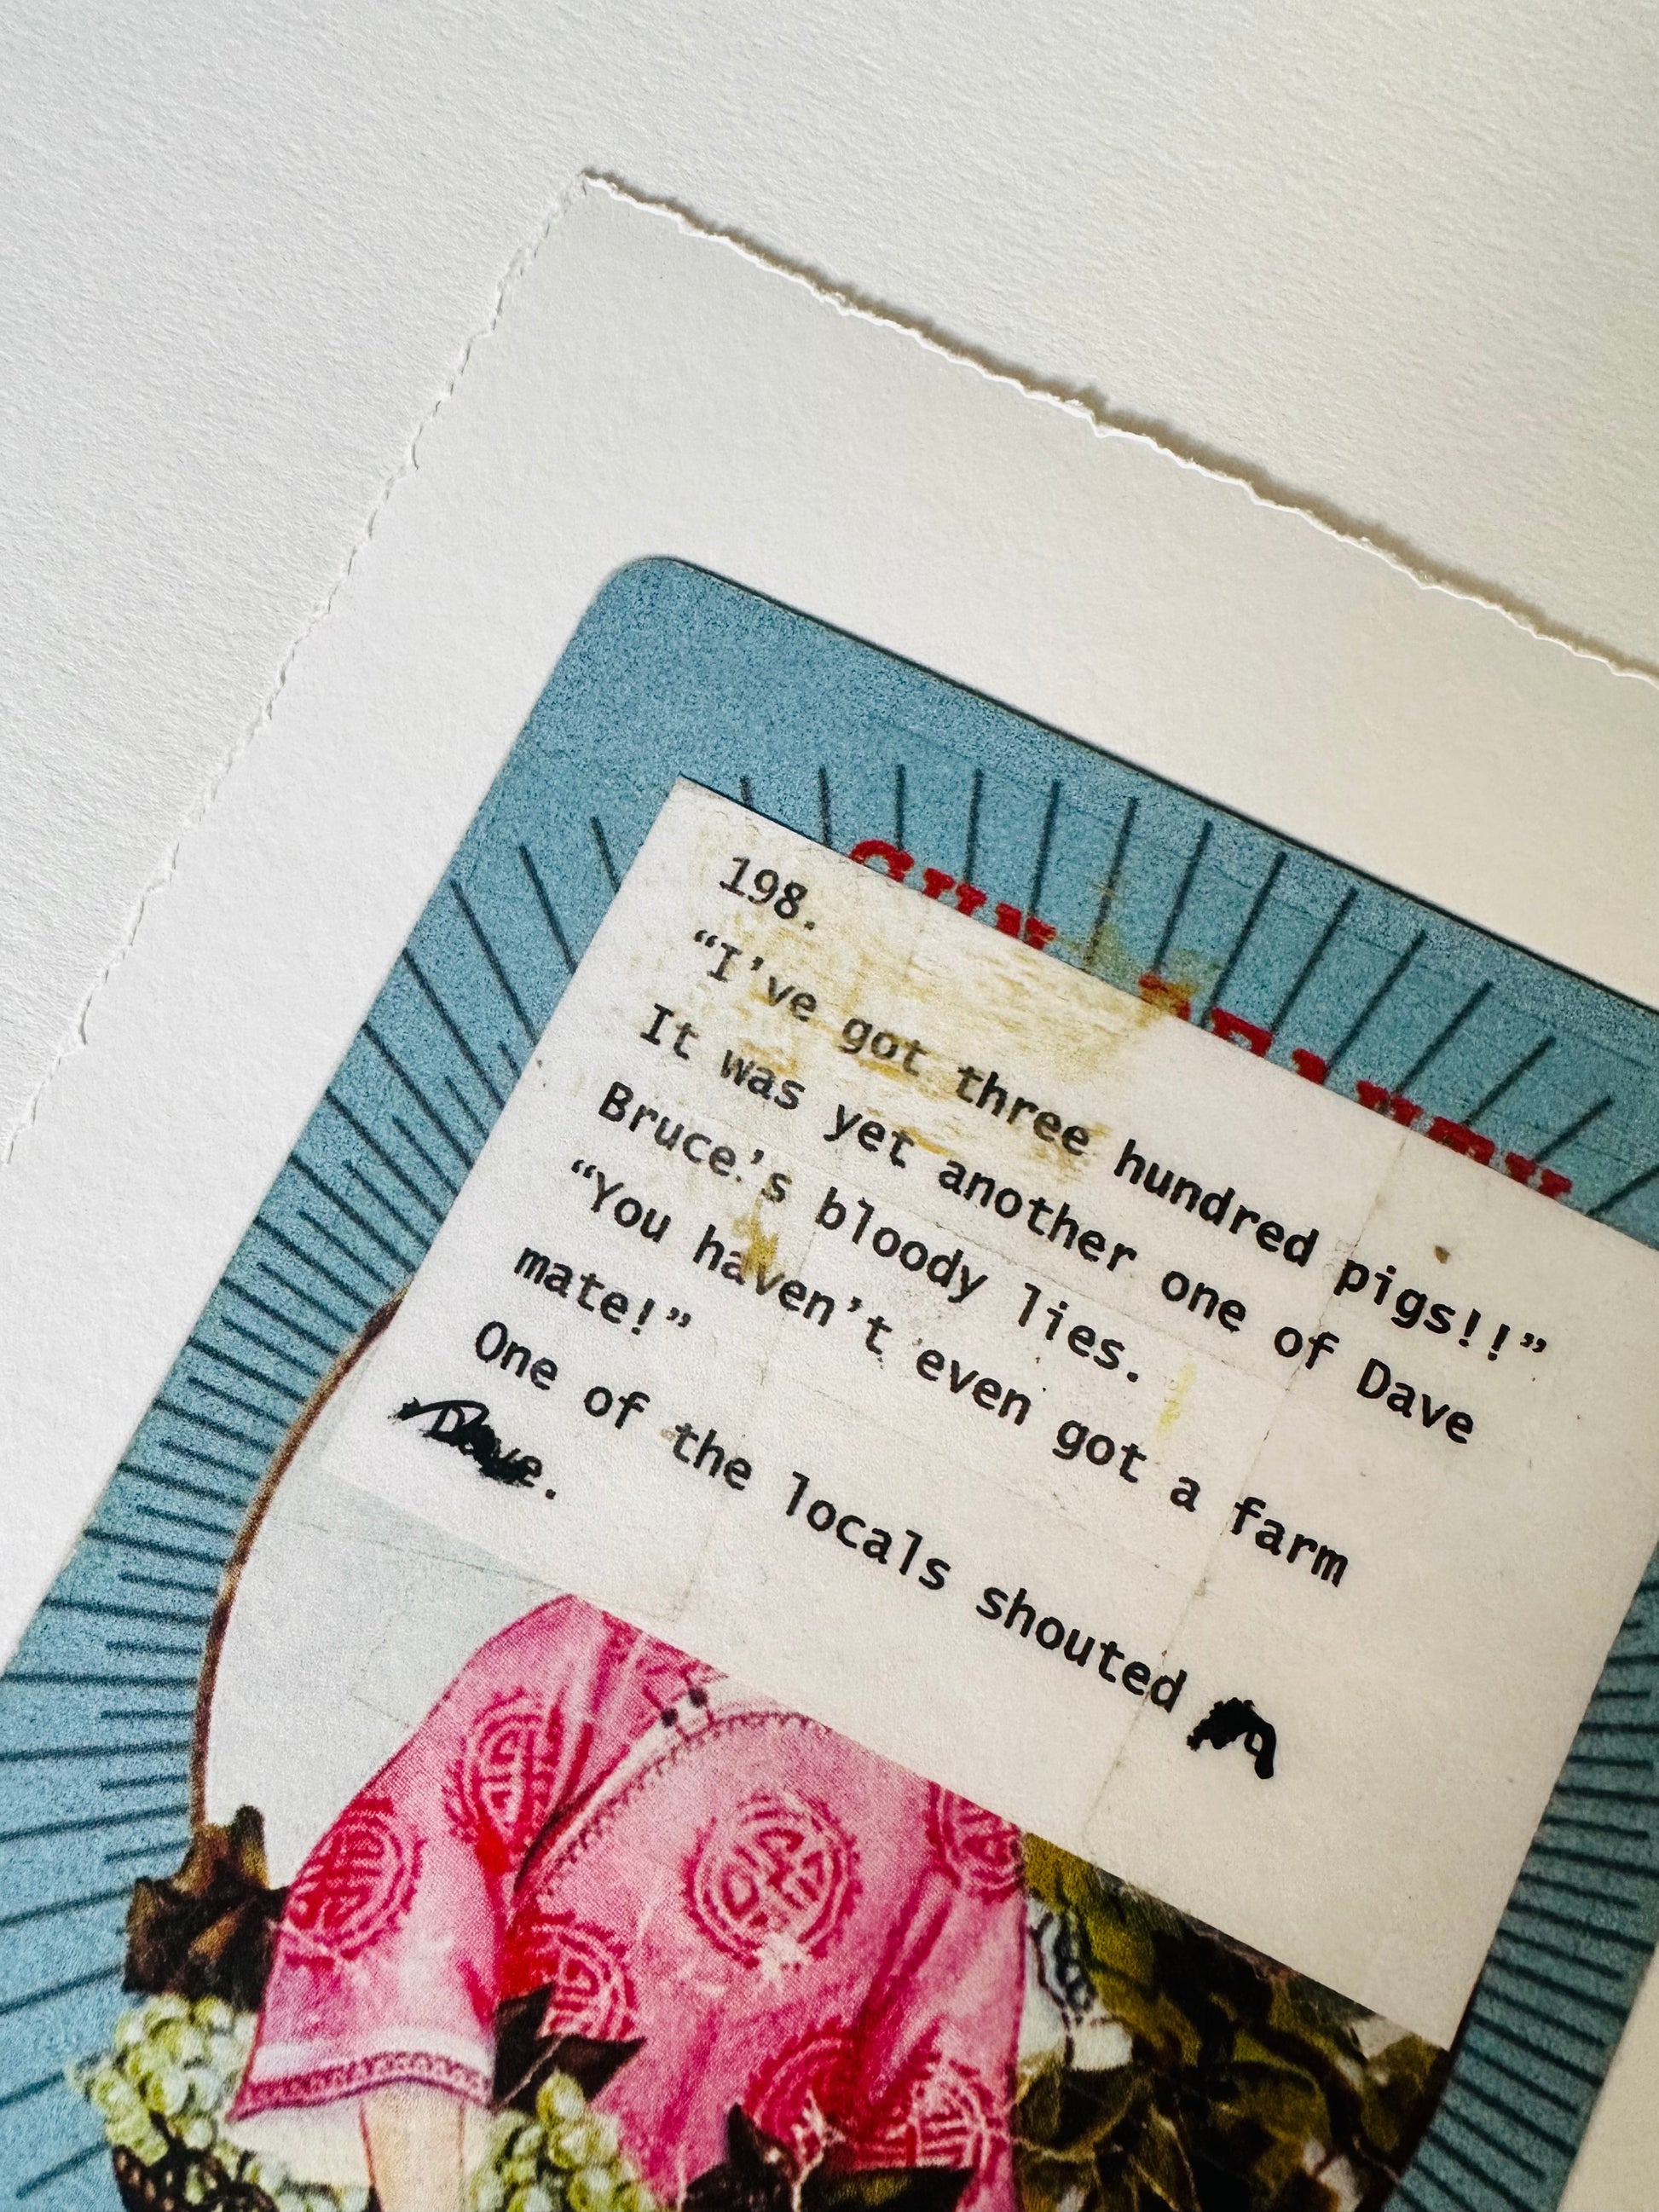 198.
“I’ve got three hundred pigs!!”
It was yet another one of Dave
Bruce.’s bloody lies.
“You haven’t even got a farm
mate!”
One of the locals shouted
Dave.